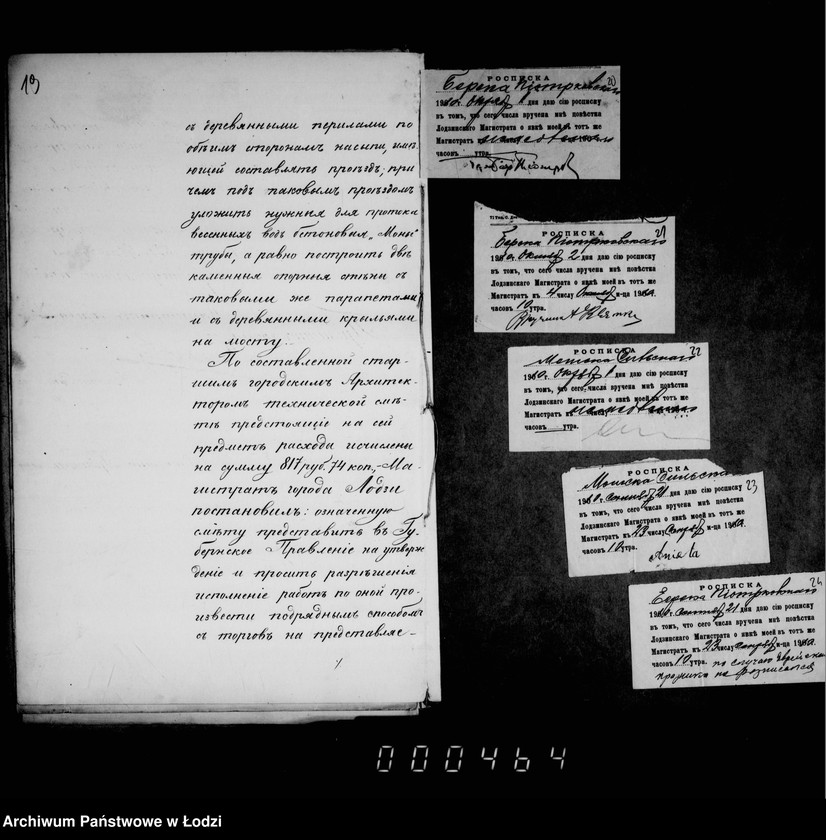 19
съ деревянными перилами по
обѣимъ сторонамъ насыпи, имѣ-
ющей составлять проѣздъ, при
чемъ подъ таковымъ проѣздомъ
уложить нужныя для протока
весеннихъ водъ бетоновыя „Монье“
трубы, а равно построить двѣ
каменныя опорныя стѣны съ
таковыми же парапетами
и съ деревянными крыльями
на мосту.
По составленной стар-
шимъ городскимъ Архитек-
торомъ технической смѣ-
тѣ предстоящіе на сей
предметъ расхода исчислены
на сумму 817 руб. 74 коп.,- Ма-
гистратъ города Лодзи
постановилъ: означенную
смѣту представить въ Гу-
бернское Правленіе на утверж-
деніе и просить разрѣшенія
исполненіе работъ по оной про-
извести подряднымъ способомъ
съ торговъ на представляе-
20
РОСПИСКА
Берека Піотрковскаго
дня даю сію росписку
въ томъ, что сего числа вручена мнѣ повѣстка
Лодзинскаго Магистрата о явкѣ моей въ тотъ же
Магистратъ
часовъ утра.
21
РОСПИСКА
Берека Піотрковскаго
2 дня даю сію росписку
въ томъ, что сего числа вручена мнѣ повѣстка
Лодзинскаго Магистрата о явкѣ моей въ тотъ же
Магистратъ къ 4 числу м-ца
часовъ 10 утра.
22
РОСПИСКА
Мошека Сильскаго
дня даю сію росписку
въ томъ, что сего числа вручена мнѣ повѣстка
Лодзинскаго Магистрата о явкѣ моей въ тотъ же
Магистратъ къ
часовъ утра.
23
РОСПИСКА
21 дня даю сію росписку
въ томъ, что сего числа вручена мнѣ повѣстка
Лодзинскаго Магистрата о явкѣ моей въ тотъ же
Магистратъ къ 23 числу м-ца
часовъ 10 утра.
24
РОСПИСКА
Берека Піотрковскаго
21 дня даю сію росписку
въ томъ, что сего числа вручена мнѣ повѣстка
Лодзинскаго Магистрата о явкѣ моей въ тотъ же
Магистратъ къ 23 числу м-ца
часовъ 10 утра. по случаю
000464
Archiwum Państwowe w Łodzi